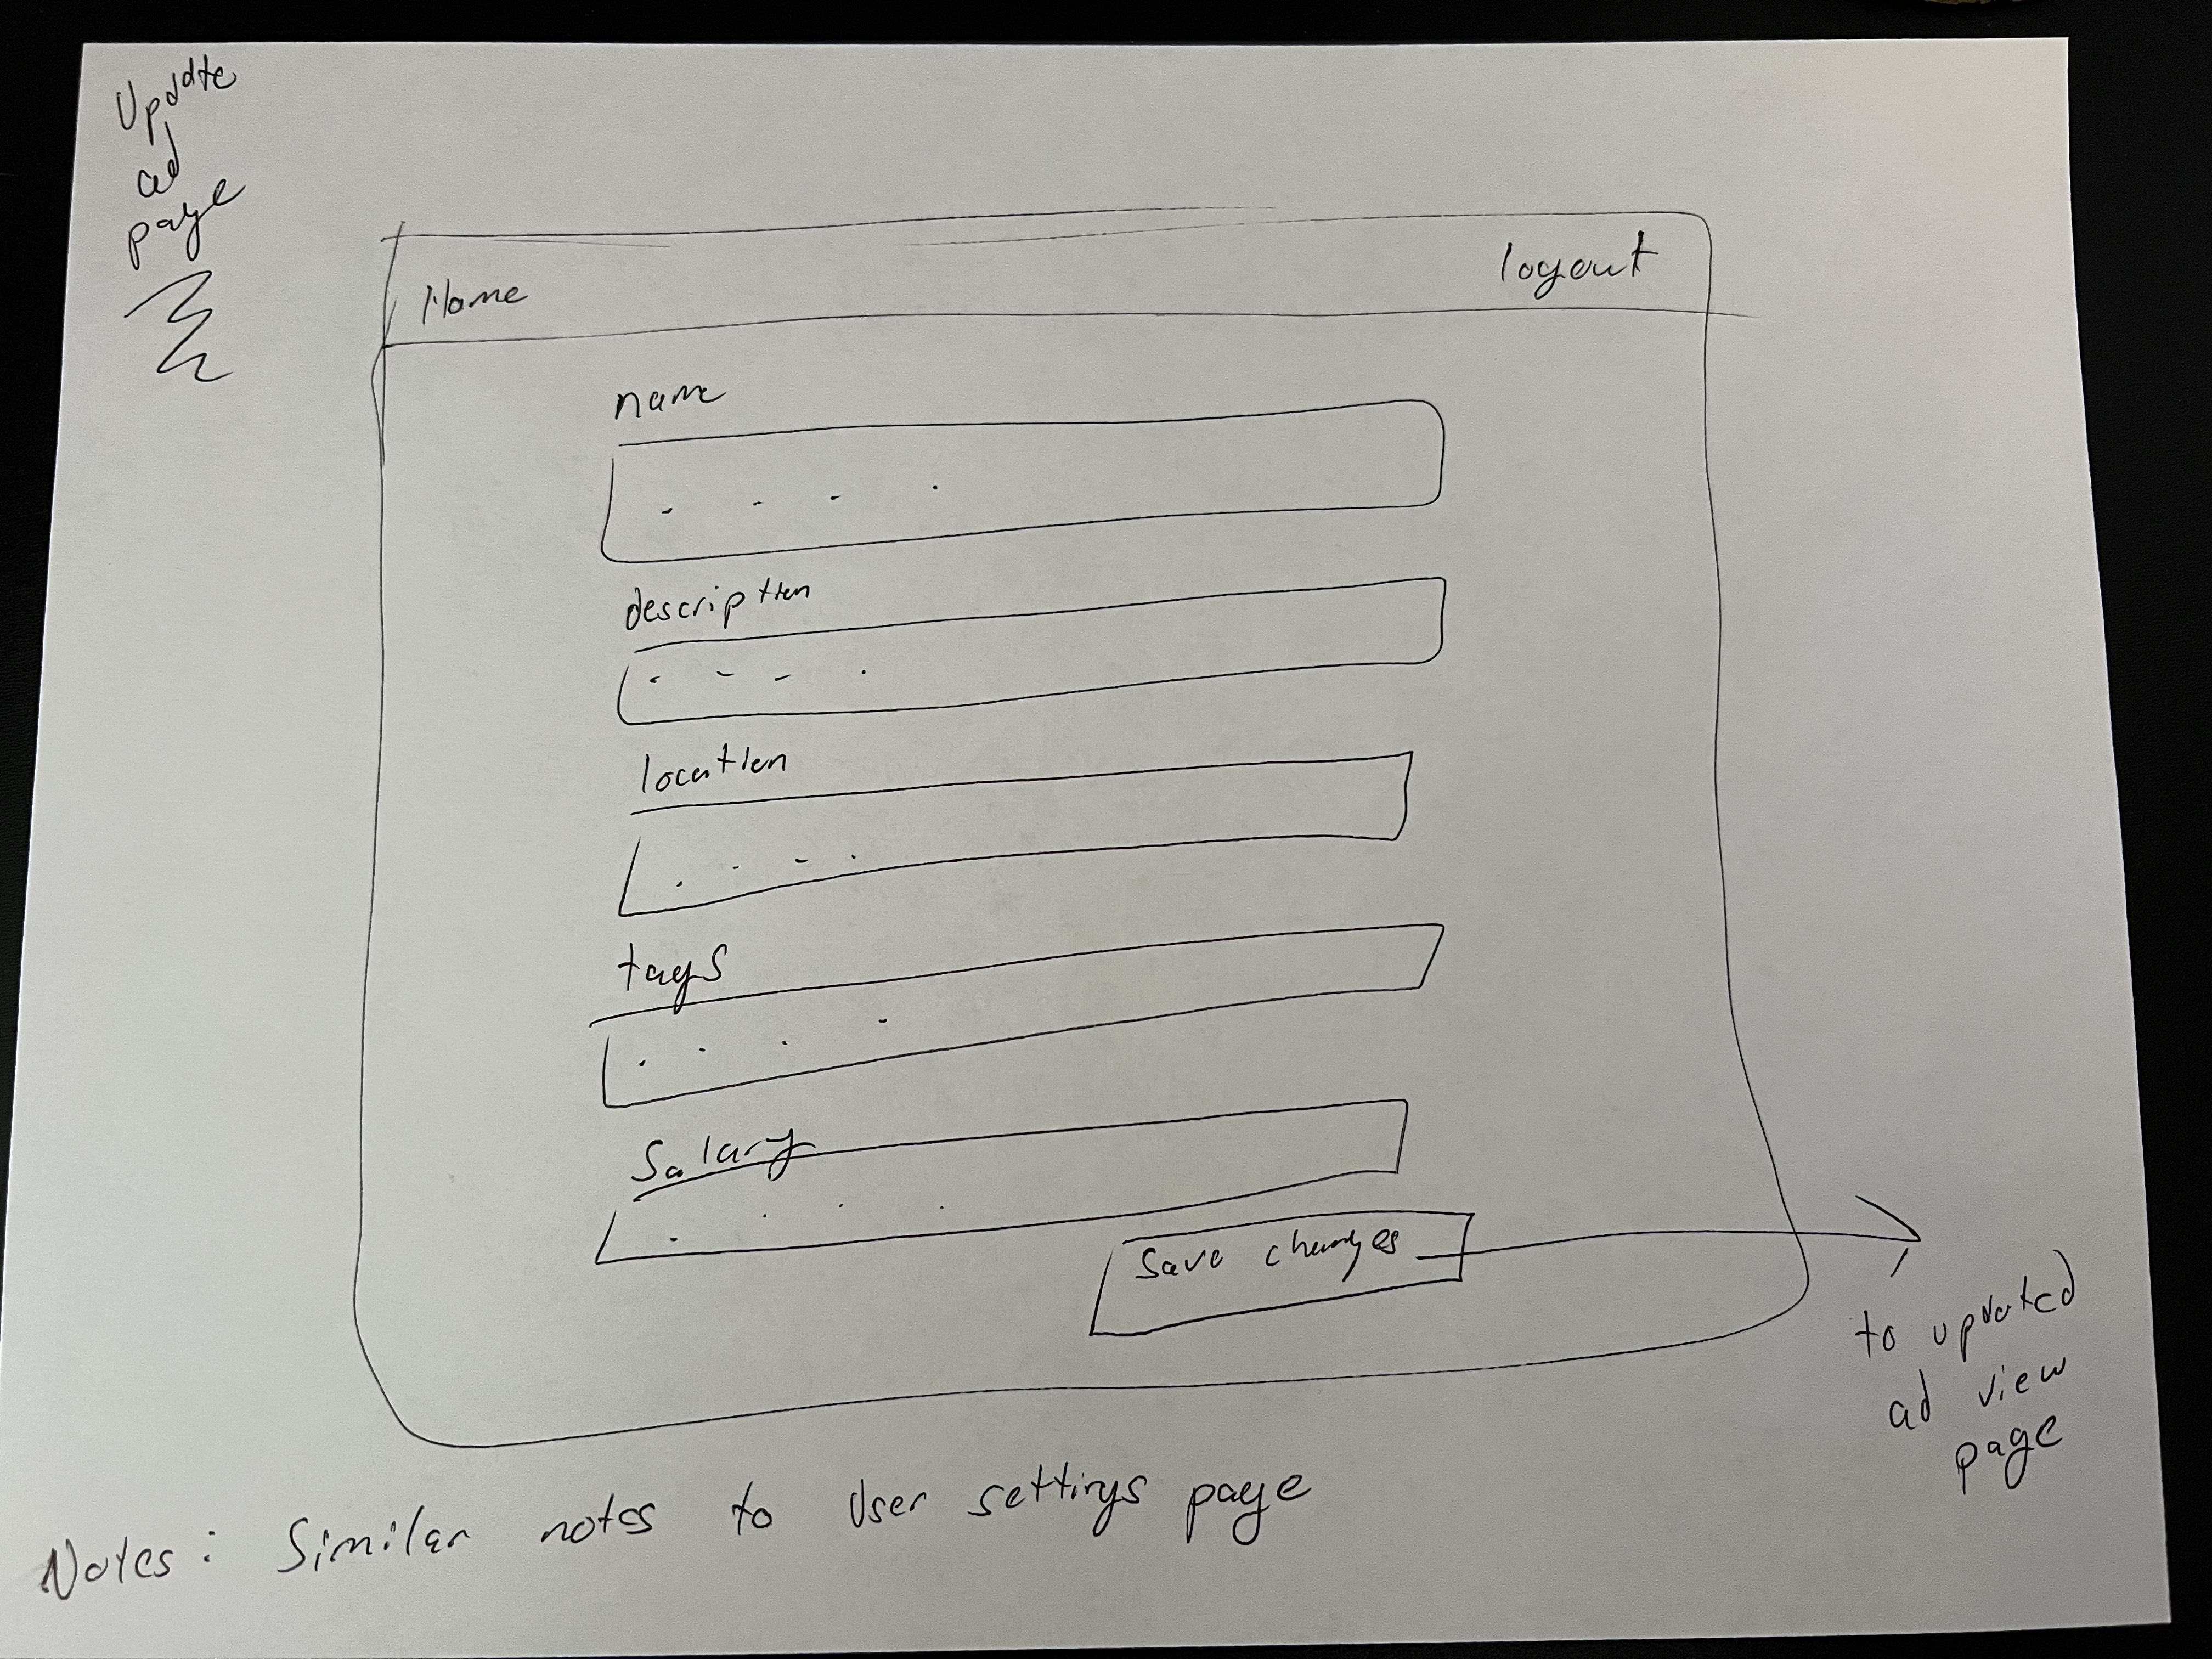 Update
ad
page
Home
logout
name
description
location
tags
Salary
Save changes
to updated
ad view
page
Notes: Similar notes to User settings page